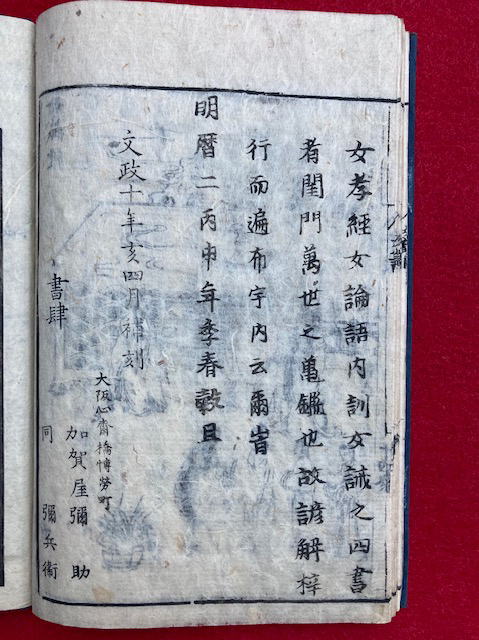 女孝經女論語内訓女誡之四書
者閨門萬世之亀鑑也故諺解梓
行而遍布宇内云爾旹
明暦二丙申年季春穀旦
文政十年亥四月補刻
大阪心齋橋博勞町
書肆
加賀屋彌助
同彌兵衛